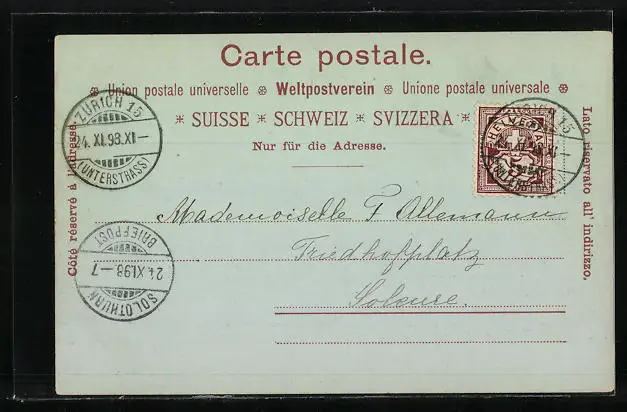 Carte postale.
❊ Union postale universelle ❊ Weltpostverein ❊ Unione postale universale ❊
* SUISSE * SCHWEIZ * SVIZZERA *
Nur für die Adresse.
Côté réservé à l'adresse.
Lato riservato all' indirizzo.
ZÜRICH 15
24. XI. 98. XI–
(UNTERSTRASS)
HELVETIA
Mademoiselle F Allemann
Friedhofplatz
Soleure.
BRIEFPOST
24. XI. 98 – 7
SOLOTHURN